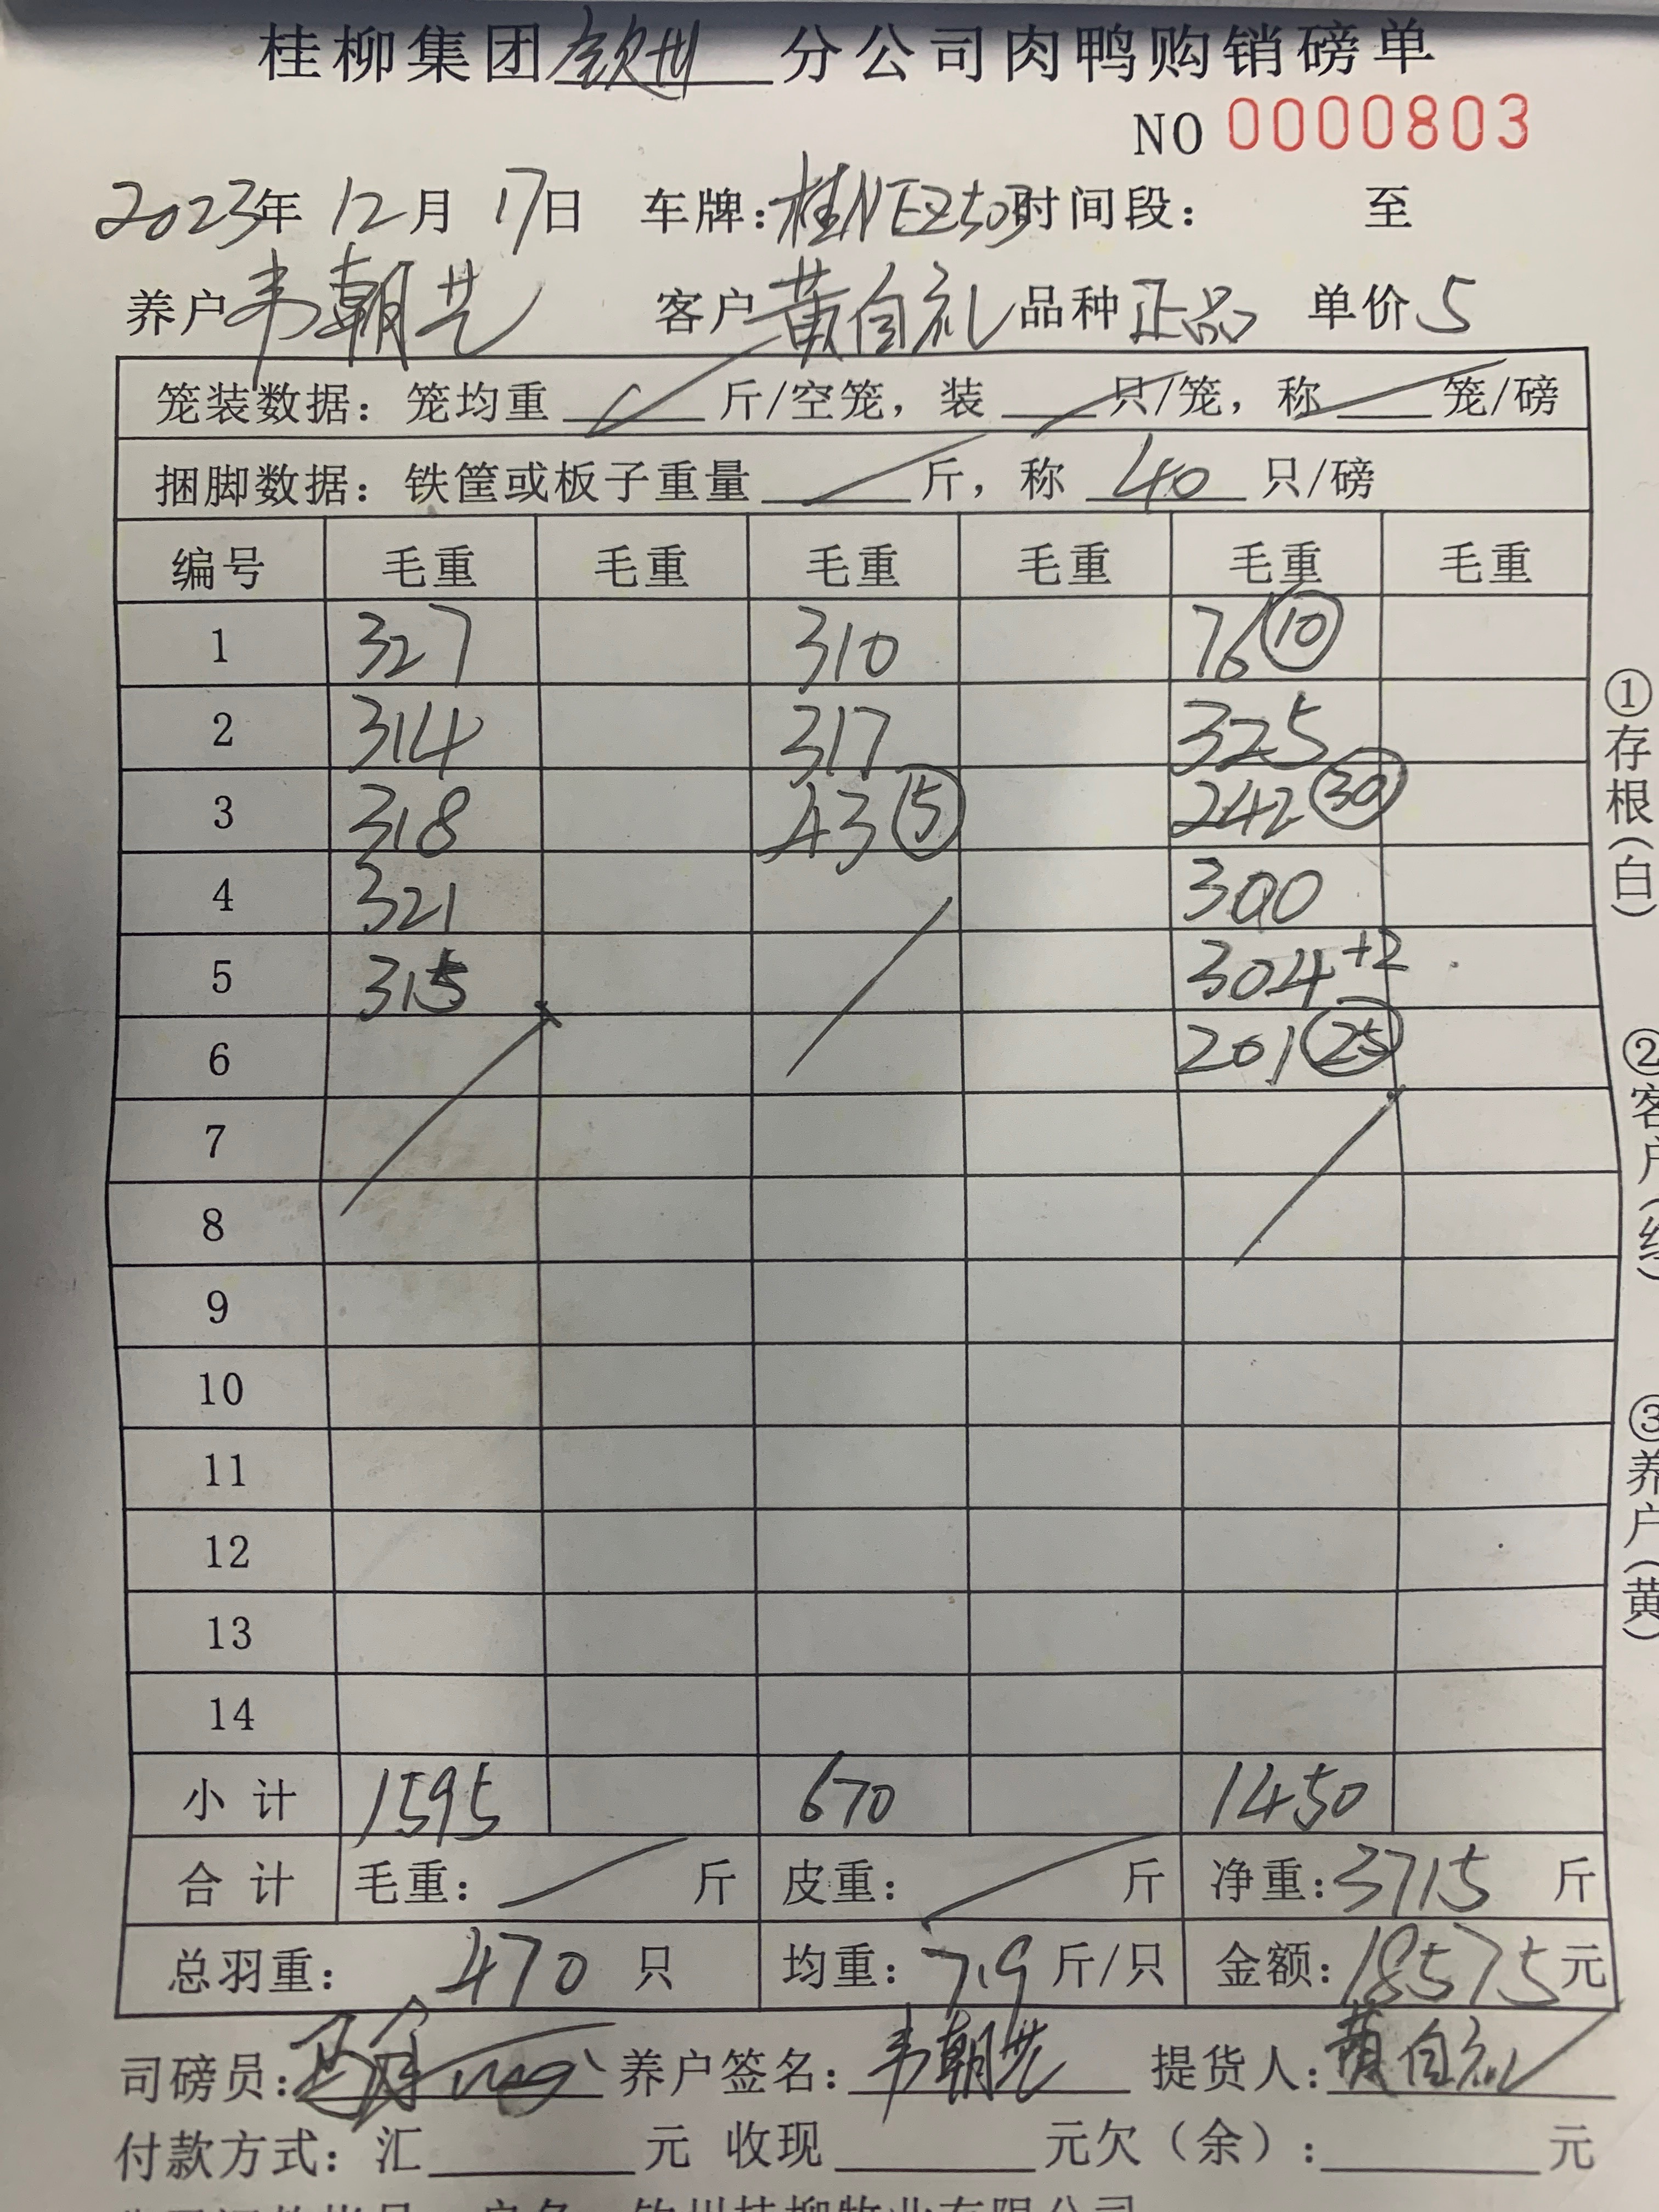 桂柳集团钦州分公司肉鸭购销磅单
NO 0000803
2023年 12月 17日 车牌:桂NEZ503时间段: 至
养户韦朝艺 客户黄自礼 品种正品 单价5
笼装数据:笼均重 斤/空笼,装 只/笼,称 笼/磅
捆脚数据:铁筐或板子重量 斤,称 40 只/磅
编号 毛重 毛重 毛重 毛重 毛重 毛重
1 327 310 76⑩
2 314 317 325
3 318 43⑤ 242㉚
4 321 300
5 315 304+2
6 201㉕
7
8
9
10
11
12
13
14
小计 1595 670 1450
合计 毛重: 斤 皮重: 斤 净重:3715 斤
总羽重: 470 只 均重:7.9 斤/只 金额:18575元
司磅员: 养户签名:韦朝艺 提货人:黄自礼
付款方式:汇 元 收现 元欠(余): 元
①存根(白)
②客户(红)
③养户(黄)